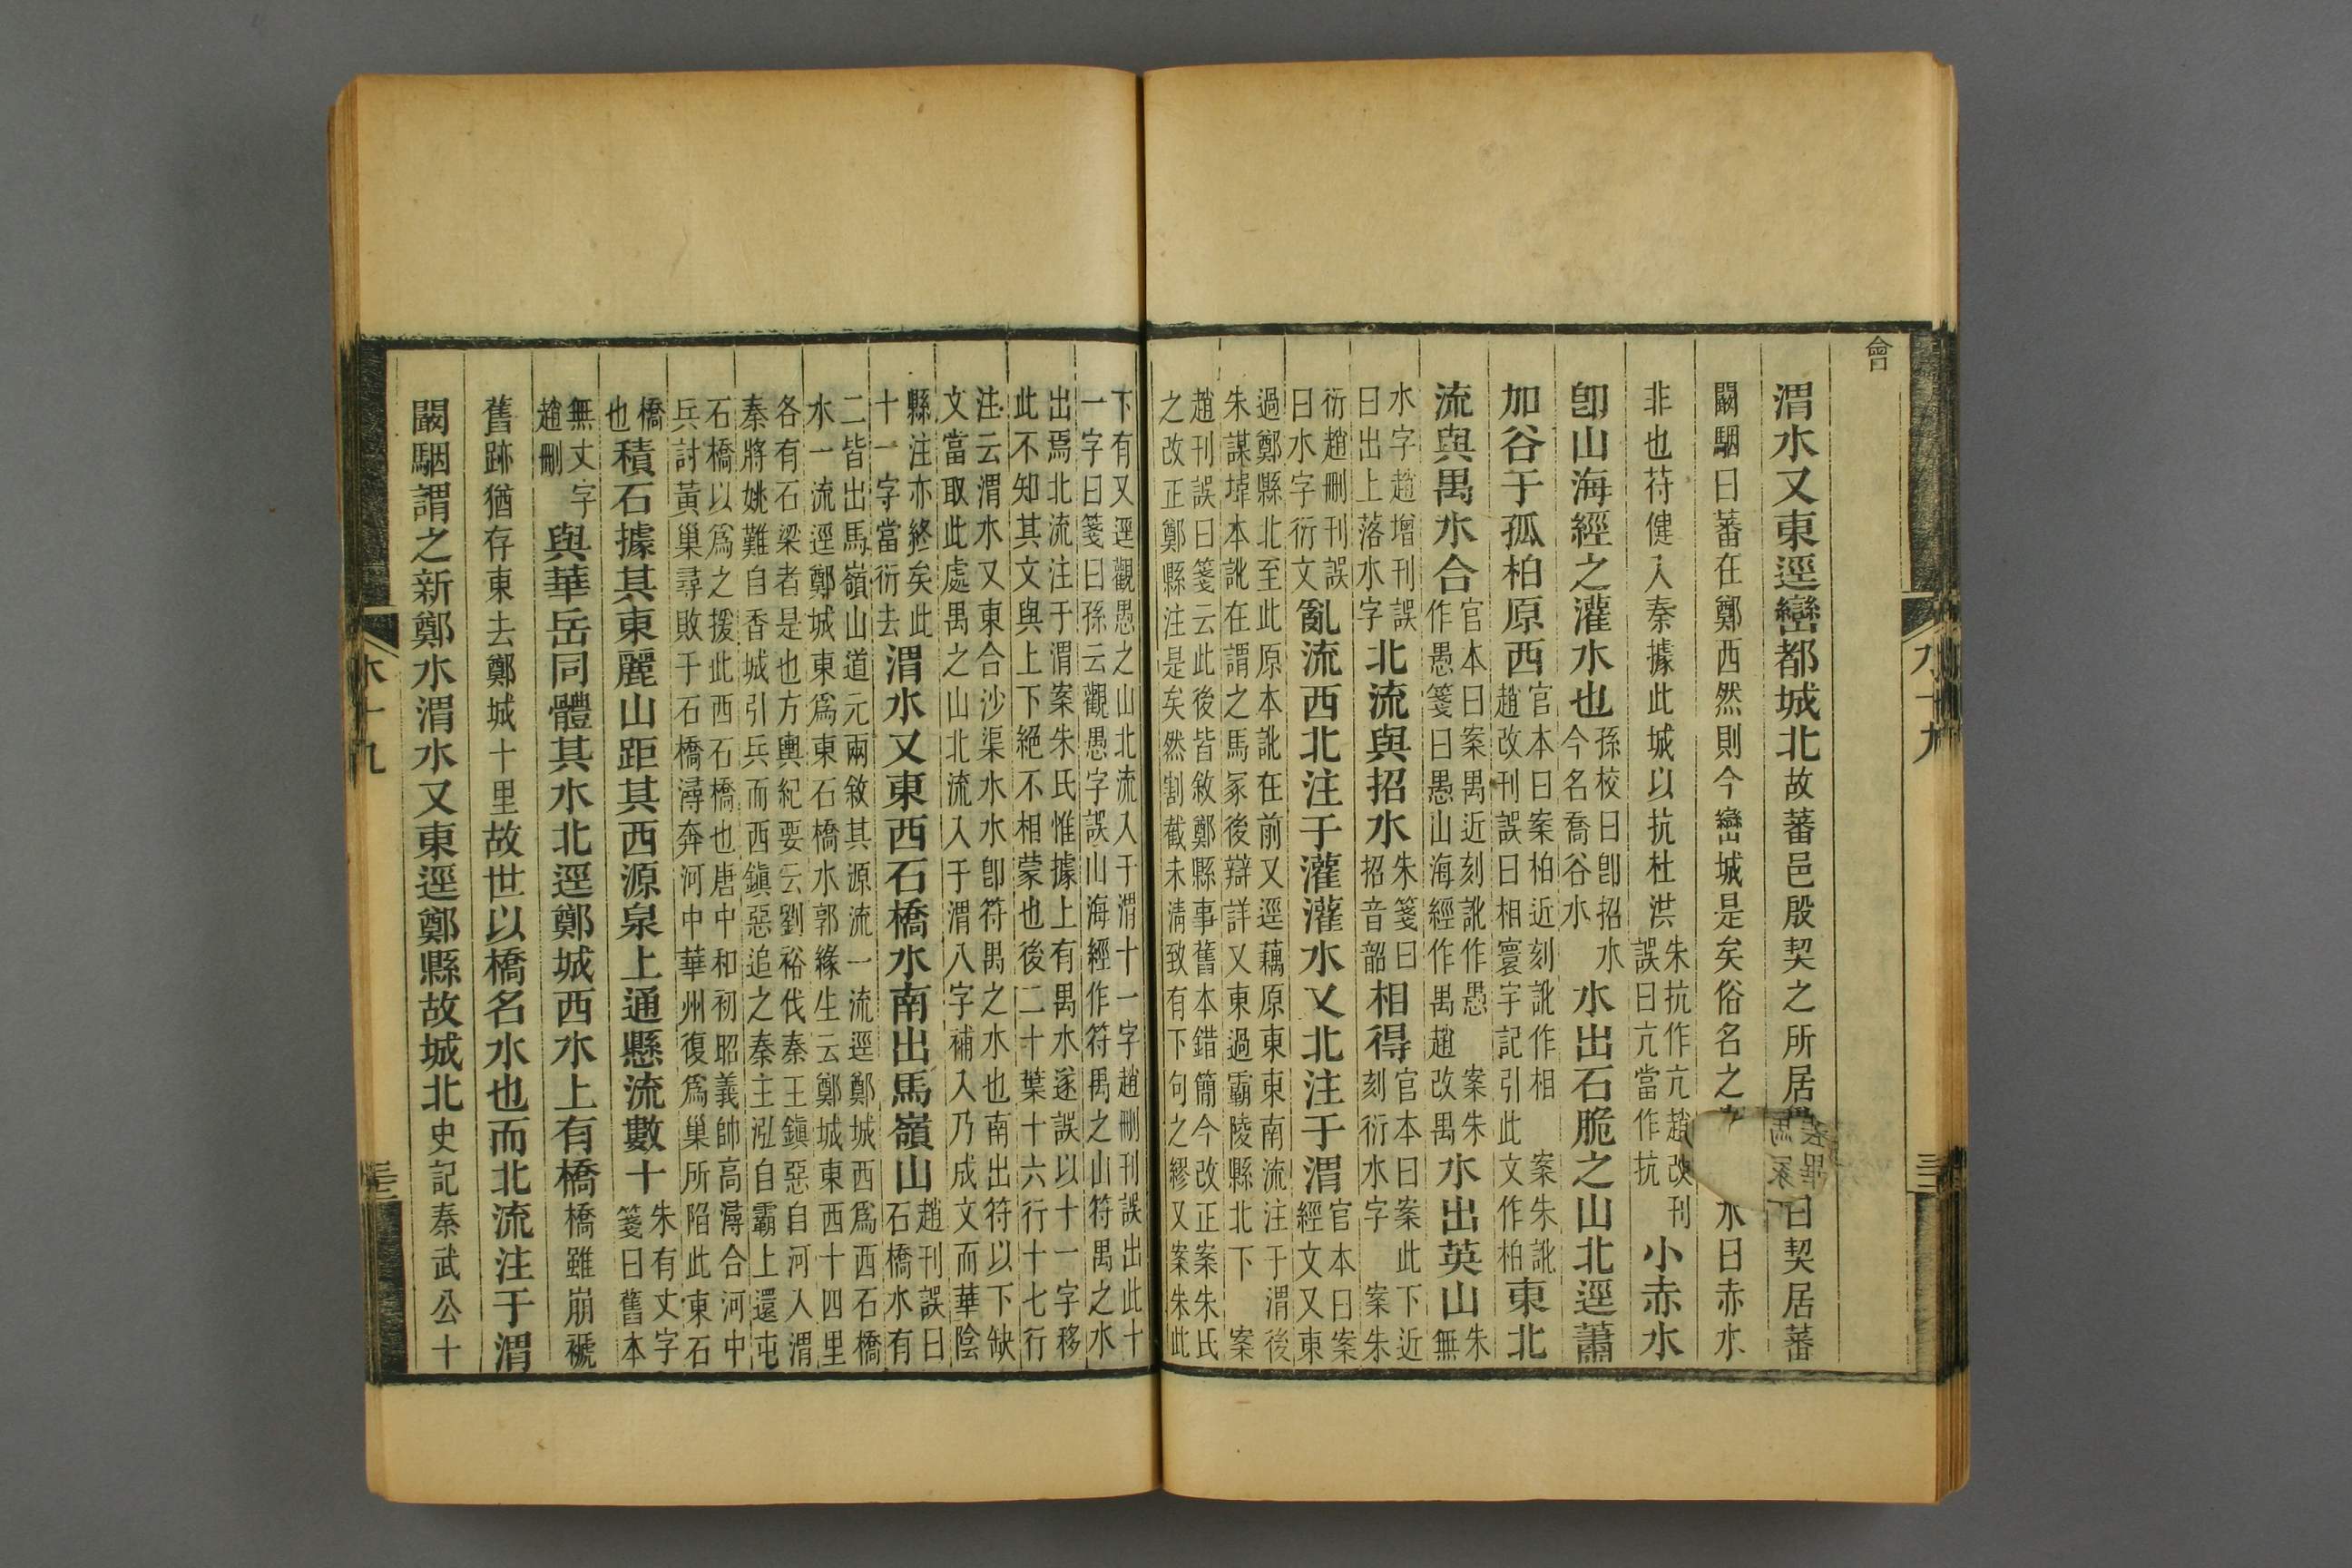 會
渭水又東逕巒都城北故蕃邑殷契之所居 曰契居蕃
闞駰曰蕃在鄭西然則今巒城是矣俗名之 水曰赤水
非也苻健入秦據此城以抗杜洪朱抗作亢趙改刊
誤曰亢當作抗小赤水
卽山海經之灌水也孫校曰卽招水
今名喬谷水水出石脆之山北逕蕭
加谷于孤柏原西官本曰案柏近刻訛作相 案朱訛
趙改刊誤曰相寰宇記引此文作柏東北
流與禺水合官本曰案禺近刻訛作愚 案朱
作愚箋曰愚山海經作禺趙改禺水出英山朱
無
水字趙增刊誤
曰出上落水字北流與招水朱箋曰
招音韶相得官本曰案此下近
刻衍水字 案朱
衍趙刪刊誤
曰水字衍文亂流西北注于灌灌水又北注于渭官本曰案
經文又東
過鄭縣北至此原本訛在前又逕藕原東東南流注于渭後
朱謀㙔本訛在謂之馬冢後辯詳又東過霸陵縣北下 案
趙刊誤曰箋云此後皆敘鄭縣事舊本錯簡今改正案朱氏
之改正鄭縣注是矣然割截未淸致有下句之繆又案朱此
下有又逕觀愚之山北流入于渭十一字趙刪刊誤出此十
一字曰箋曰孫云觀愚字誤山海經作符禺之山符禺之水
出焉北流注于渭案朱氏惟據上有禺水遂誤以十一字移
此不知其文與上下絕不相蒙也後二十葉十六行十七行
注云渭水又東合沙渠水水卽符禺之水也南出符以下缺
文當取此處禺之山北流入于渭八字補入乃成文而華陰
縣注亦終矣此
十一字當衍去渭水又東西石橋水南出馬嶺山趙刊誤曰
石橋水有
二皆出馬嶺山道元兩敘其源流一流逕鄭城西爲西石橋
水一流逕鄭城東爲東石橋水郭緣生云鄭城東西十四里
各有石梁者是也方輿紀要云劉裕伐秦王鎮惡自河入渭
秦將姚難自香城引兵而西鎮惡追之秦主泓自霸上還屯
石橋以爲之援此西石橋也唐中和初昭義帥高潯合河中
兵討黃巢尋敗于石橋潯奔河中華州復爲巢所陷此東石
橋
也積石據其東麗山距其西源泉上通懸流數十朱有丈字
箋曰舊本
無丈字
趙刪與華岳同體其水北逕鄭城西水上有橋橋雖崩褫
舊跡猶存東去鄭城十里故世以橋名水也而北流注于渭
闞駰謂之新鄭水渭水又東逕鄭縣故城北史記秦武公十
水十九
三十二
水十九